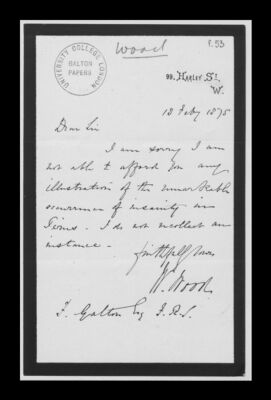 Wood
F.53
UNIVERSITY COLLEGE LONDON
GALTON
PAPERS
99, HARLEY ST.
W.
18 Feby 1875
Dear Sir
I am sorry I am
not able to afford you any
illustration of the remarkable
occurrence of insanity in
Twins. I do not recollect an
instance -
faithfully yours
W. Wood
F. Galton Esq F.R.S.